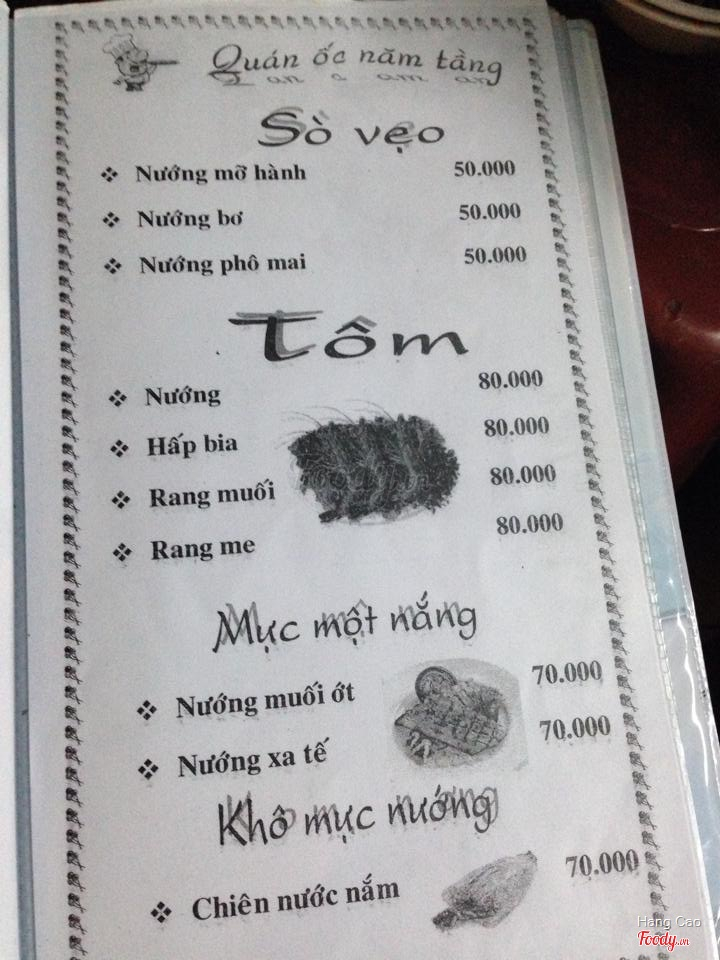 Quán ốc năm tầng
Sò vẹo
❖ Nướng mỡ hành 50.000
❖ Nướng bơ 50.000
❖ Nướng phô mai 50.000
Tôm
❖ Nướng 80.000
❖ Hấp bia 80.000
❖ Rang muối 80.000
❖ Rang me 80.000
Mực một nắng
❖ Nướng muối ớt 70.000
❖ Nướng xa tế 70.000
Khô mực nướng
❖ Chiên nước nắm 70.000
Hang Cao
Foody.vn